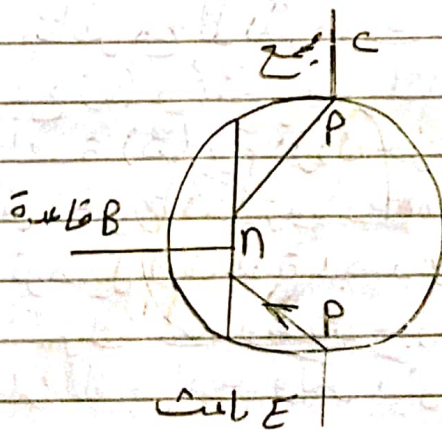 مجمع C
P
قاعدة B
n
P
باعث E